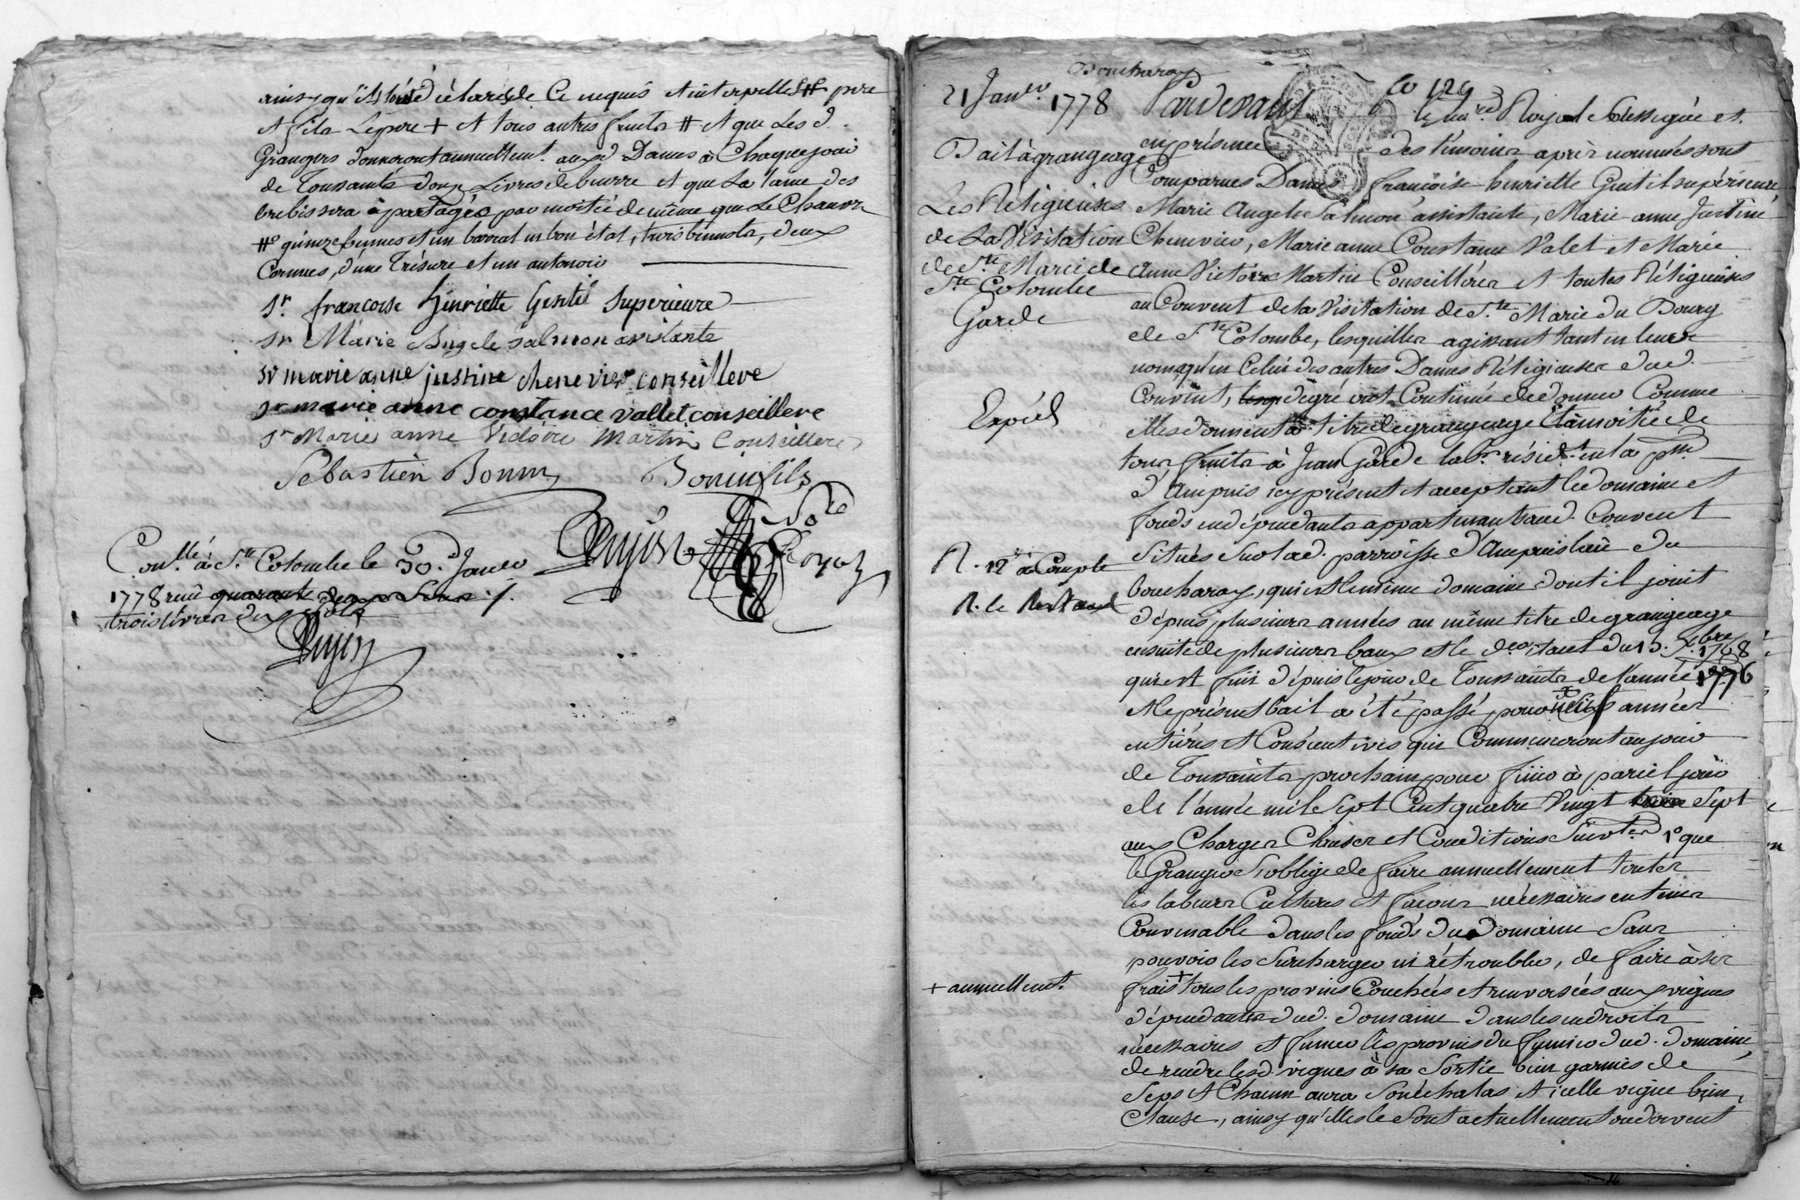 ainsy qu'ils l'ont déclaré de ce requis et interpellés # pere
et fils Lepere + et tous autres fruits # et que les d.
Grangers donneront annuellement. auxd Dames à Chaque jour
de Toussaints douze Livres de beurre et que la laine des
brebis sera à partager par moitié de même que le Chanvre
#° quinze bennes et un barral en bon état, trois bennots, deux
Cornues, d'une Trésure et un antonoir
Sr francoise henriette Gentil Superieure
Sr Marie Angele Salmon assistante
Sr marie anne justine chenevier conseillere
Sr marie anne constance vallet conseillere
Sr Marie anne Victoire Martin Conseillere
Sebastien Bonin Bonin fils
Dujin
Con.llé à Ste Colombe le 30.d Janer
1778 reçu quarante
trois livres dix sols
Dujin
Boucharay
21 Janer. 1778 Pardevant le no.re Royal Soussigné et
Bail à grangeage en présence des témoins après nommés sont
Comparues Dames françoise henriette Gentil supérieure
Les Réligieuses Marie Angele Salmon assistante, Marie anne Justine
de La Visitation Chenevier, Marie anne Constance Valet et Marie
de Ste Marie de Anne Victoire Martin Conseilléres et toutes Réligieuses
Ste Colombe au Couvent de la Visitation de Ste Marie du Bourg
Garde de Ste Colombe, lesquelles agissant tant en leurs
noms qu'en Celui des autres Dames Réligieuses dud.
Expéd Couvent, de gré ont Continué de donner Comme
elles donnent à titre de grangeage Et à moitié de
tous fruits à Jean Garde lab.r résid.t en la p.sse
d'Ampuis icy présent et acceptant le domaine et
fonds en dépendants appartenant aud. Couvent
Situés Sur lad. parroisse d'Ampuis lieu du
R. 12s à Compte boucharay, qui est le même domaine dont il jouit
R. le Restant dépuis plusieurs années au même titre de grangeage
ensuite de plusieurs baux et le der. étant du 13. 1768
qui est fini dépuis le jour de Toussaints de l'année 1776
et le présent bail a été passé pour années
entiéres et Consécutives qui Commenceront au jour
de Toussaints prochain pour finir à pareil jour
de l'année mil Sept Cent quatre Vingt Sept
aux Charges Clauses et Conditions Suivtes 1° que
le Granger S'oblige de faire annuellement toutes
les labeurs Cultures et façons nécessaires en tems
Convenable dans les fonds du domaine Sans
pouvoir les Surcharger ni rétroubler, de faire à ses
+ annuellemt. frais + tous les provins Couchés et renversées aux vignes
dépendantes dud. domaine dans les endroits
nécessaires et fumer les provins du fumier dud. domaine
de rendre lesd. vignes à sa Sortie bien garnies de
Seps et Chacun aura Son échalas et icelle vigne bien
Clause, ainsy qu'elles le Sont actuellement ou doivent